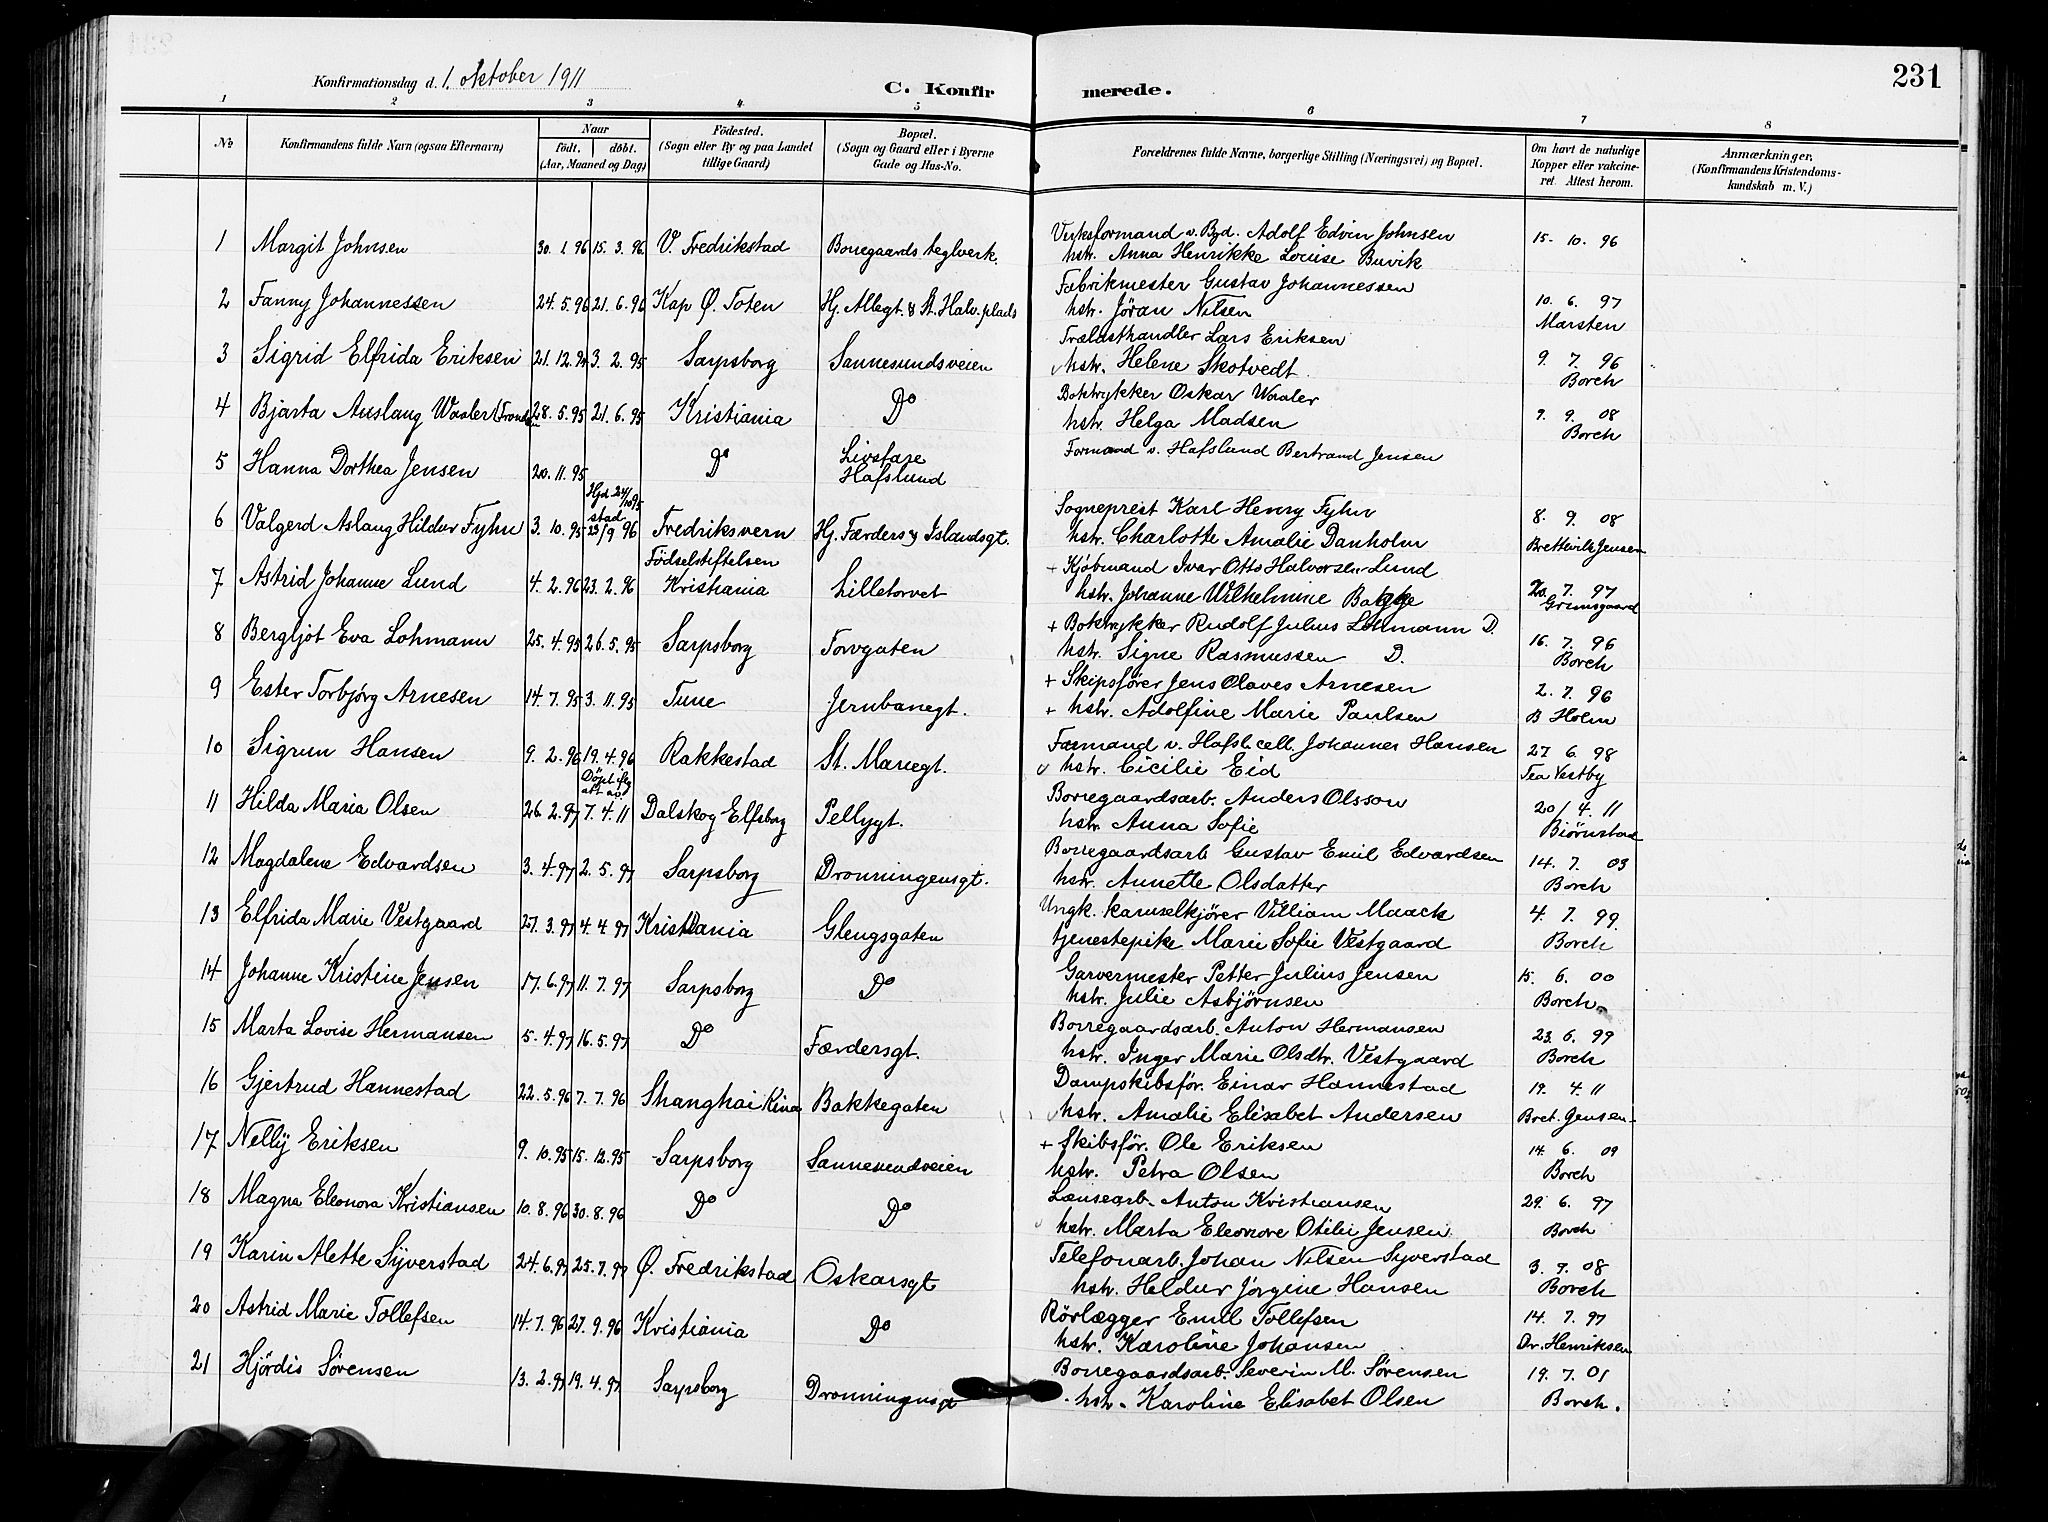 Konfirmationsdag d. 1. oktober 1911
C. Konfirmerede.
231
1 2 3 4 5 6 7 8
No
Konfirmandens fulde Navn (ogsaa Efternavn)
Naar
født. døbt.
(Aar, Maaned og Dag)
Födested.
(Sogn eller By og paa Landet
tillige Gaard)
Bopæl.
(Sogn og Gaard eller i Byerne
Gade og Hus-No.
Forældrenes fulde Navne, borgerlige Stilling (Næringsvei) og Bopæl.
Om havt de naturlige
Kopper eller vakcine-
ret. Attest herom.
Anmærkninger.
(Konfirmandens Kristendoms-
kundskab m. V.)
1 Margit Johnsen 30. 1. 96 15. 3. 96 V. Fredrikstad Borregaards teglverk.
Verksformand v. Bgd. Adolf Edvin Johnsen 15. 10. 96
hstr. Anna Henrikke Louise Buvik
2 Fanny Johannessen 24. 5. 96 21. 6. 96 Kap Ø. Toten Hj. Allegt. & St. Halv. plads
Fabrikmester Gustav Johannessen 10. 6. 97
hstr. Jöran Nilsen Marsten
3 Sigrid Elfrida Eriksen 21. 12. 94 3. 2. 95 Sarpsborg Sannesundsveien
Trælasthandler Lars Eriksen 9. 7. 96
hstr. Helene Skotvedt Borch
4 Bjarta Auslaug Waaler 28. 5. 95 21. 6. 95 Kristiania Do
Boktrykker Oskar Waaler 9. 08
hstr. Helga Madsen Borch
5 Hanna Dorthea Jensen 20. 11. 95 Do Livsfare
Hafslund
Formand v. Hafslund Bertrand Jensen
6 Valgerd Aslaug Hildur Fyhn 3. 10. 95 Hjd 24/10 95
stad. 23/9 96 Fredriksvern Hj. Færders & Islandsgt.
Sogneprest Karl Henry Fyhn 8. 9. 08
hstr. Charlotte Amalie Danholm Brettevile Jensen
7 Astrid Johanne Lund 4. 2. 96 23. 2. 96 Födselstiftelsen
Kristiania Lilletorvet
+ Kjøbmand Ivar Otto Halvorsen Lund 20. 7. 97
hstr. Johanne Wilhelmine Bagge Grimsgaard
8 Bergljot Eva Lohmann 25. 4. 95 26. 5. 95 Sarpsborg Torvgaten
+ Boktrykker Rudolf Julius Lohmann D. 16. 7. 96
hstr. Signe Rasmussen D. Borch
9 Ester Torbjørg Arnesen 14. 7. 95 3. 11. 95 Tune Jernbanegt.
+ Skipsfører Jens Olaves Arnesen 2. 7. 96
+ hstr. Adolfine Marie Paulsen B Holm
10 Sigrun Hansen 9. 2. 96 19. 4. 96 Rakkestad St. Mariegt.
Formand v. Hafsl. cell. Johannes Hansen 27 6. 98
hstr. Cicilie Eid Tea Vestby
11 Hilda Maria Olsen 26. 2. 97 Döpt iflg
att av
7. 4. 11 Dalskog Elfsborg Pellygt.
Borregaardsarb. Anders Olsson 20/ 4. 11
hstr. Anna Sofie Biørnstad
12 Magdalene Edvardsen 3. 4. 97 2. 5. 97 Sarpsborg Dronningensgt.
Borregaardsarb Gustav Emil Edvardsen 14. 7. 03
hstr. Annette Olsdatter Borch
13 Elfrida Marie Vestgaard 27. 3. 97 4. 4. 97 Kristiania Glengsgaten
Ungk. karuselkjører Villiam Maack 4. 7. 99.
tjenestepike Marie Sofie Vestgaard Borch
14 Johanne Kristine Jensen 17. 6. 97 11. 7. 97 Sarpsborg Do
Garvermester Petter Julius Jensen 15. 6. 00
hstr. Julie Asbjørnsen Borch
15 Marta Lovise Hermansen 5. 4. 97 16. 5. 97 Do Færdersgt.
Borregaardsarb. Anton Hermansen 23. 6. 99
hstr. Inger Marie Olsdtr. Vestgaard Borch
16 Gjertrud Hannestad 22. 5. 96 7. 7. 96 Shanghai Kina Bakkegaten
Dampskibsför. Einar Hannestad 19. 4. 11
hstr. Amalie Elisabet Andersen Bret. Jensen
17 Nelly Eriksen 9. 10. 95 15. 12. 95 Sarpsborg Sannesundveien
+ Skibsför. Ole Eriksen 14. 6. 09
hstr. Petra Olsen Borch
18 Magna Eleonora Kristiansen 10. 8. 96 30. 8. 96 Do Do
Lænsearb. Anton Kristiansen 29. 6. 97
hstr. Marta Eleonore Otilie Jensen Borch
19 Karin Alette Syverstad 24. 6. 97 25. 7. 97 Ø. Fredrikstad Oskarsgt
Telefonarb. Johan Nilsen Syverstad 3. 9. 08
hstr. Heldur Jörgine Hansen Borch
20 Astrid Marie Tollefsen 14. 7. 96 27. 9. 96 Kristiania Do
Rörlægger Emil Tollefsen 14. 7. 97
hstr. Karoline Johansen Dr. Henriksen
21 Hjørdis Sørensen 13. 2. 97 19. 4. 97 Sarpsborg Dronningensgt
Borregaardsarb. Severin M. Sørensen 19. 7. 01
hstr. Karoline Elisabet Olsen Borch.